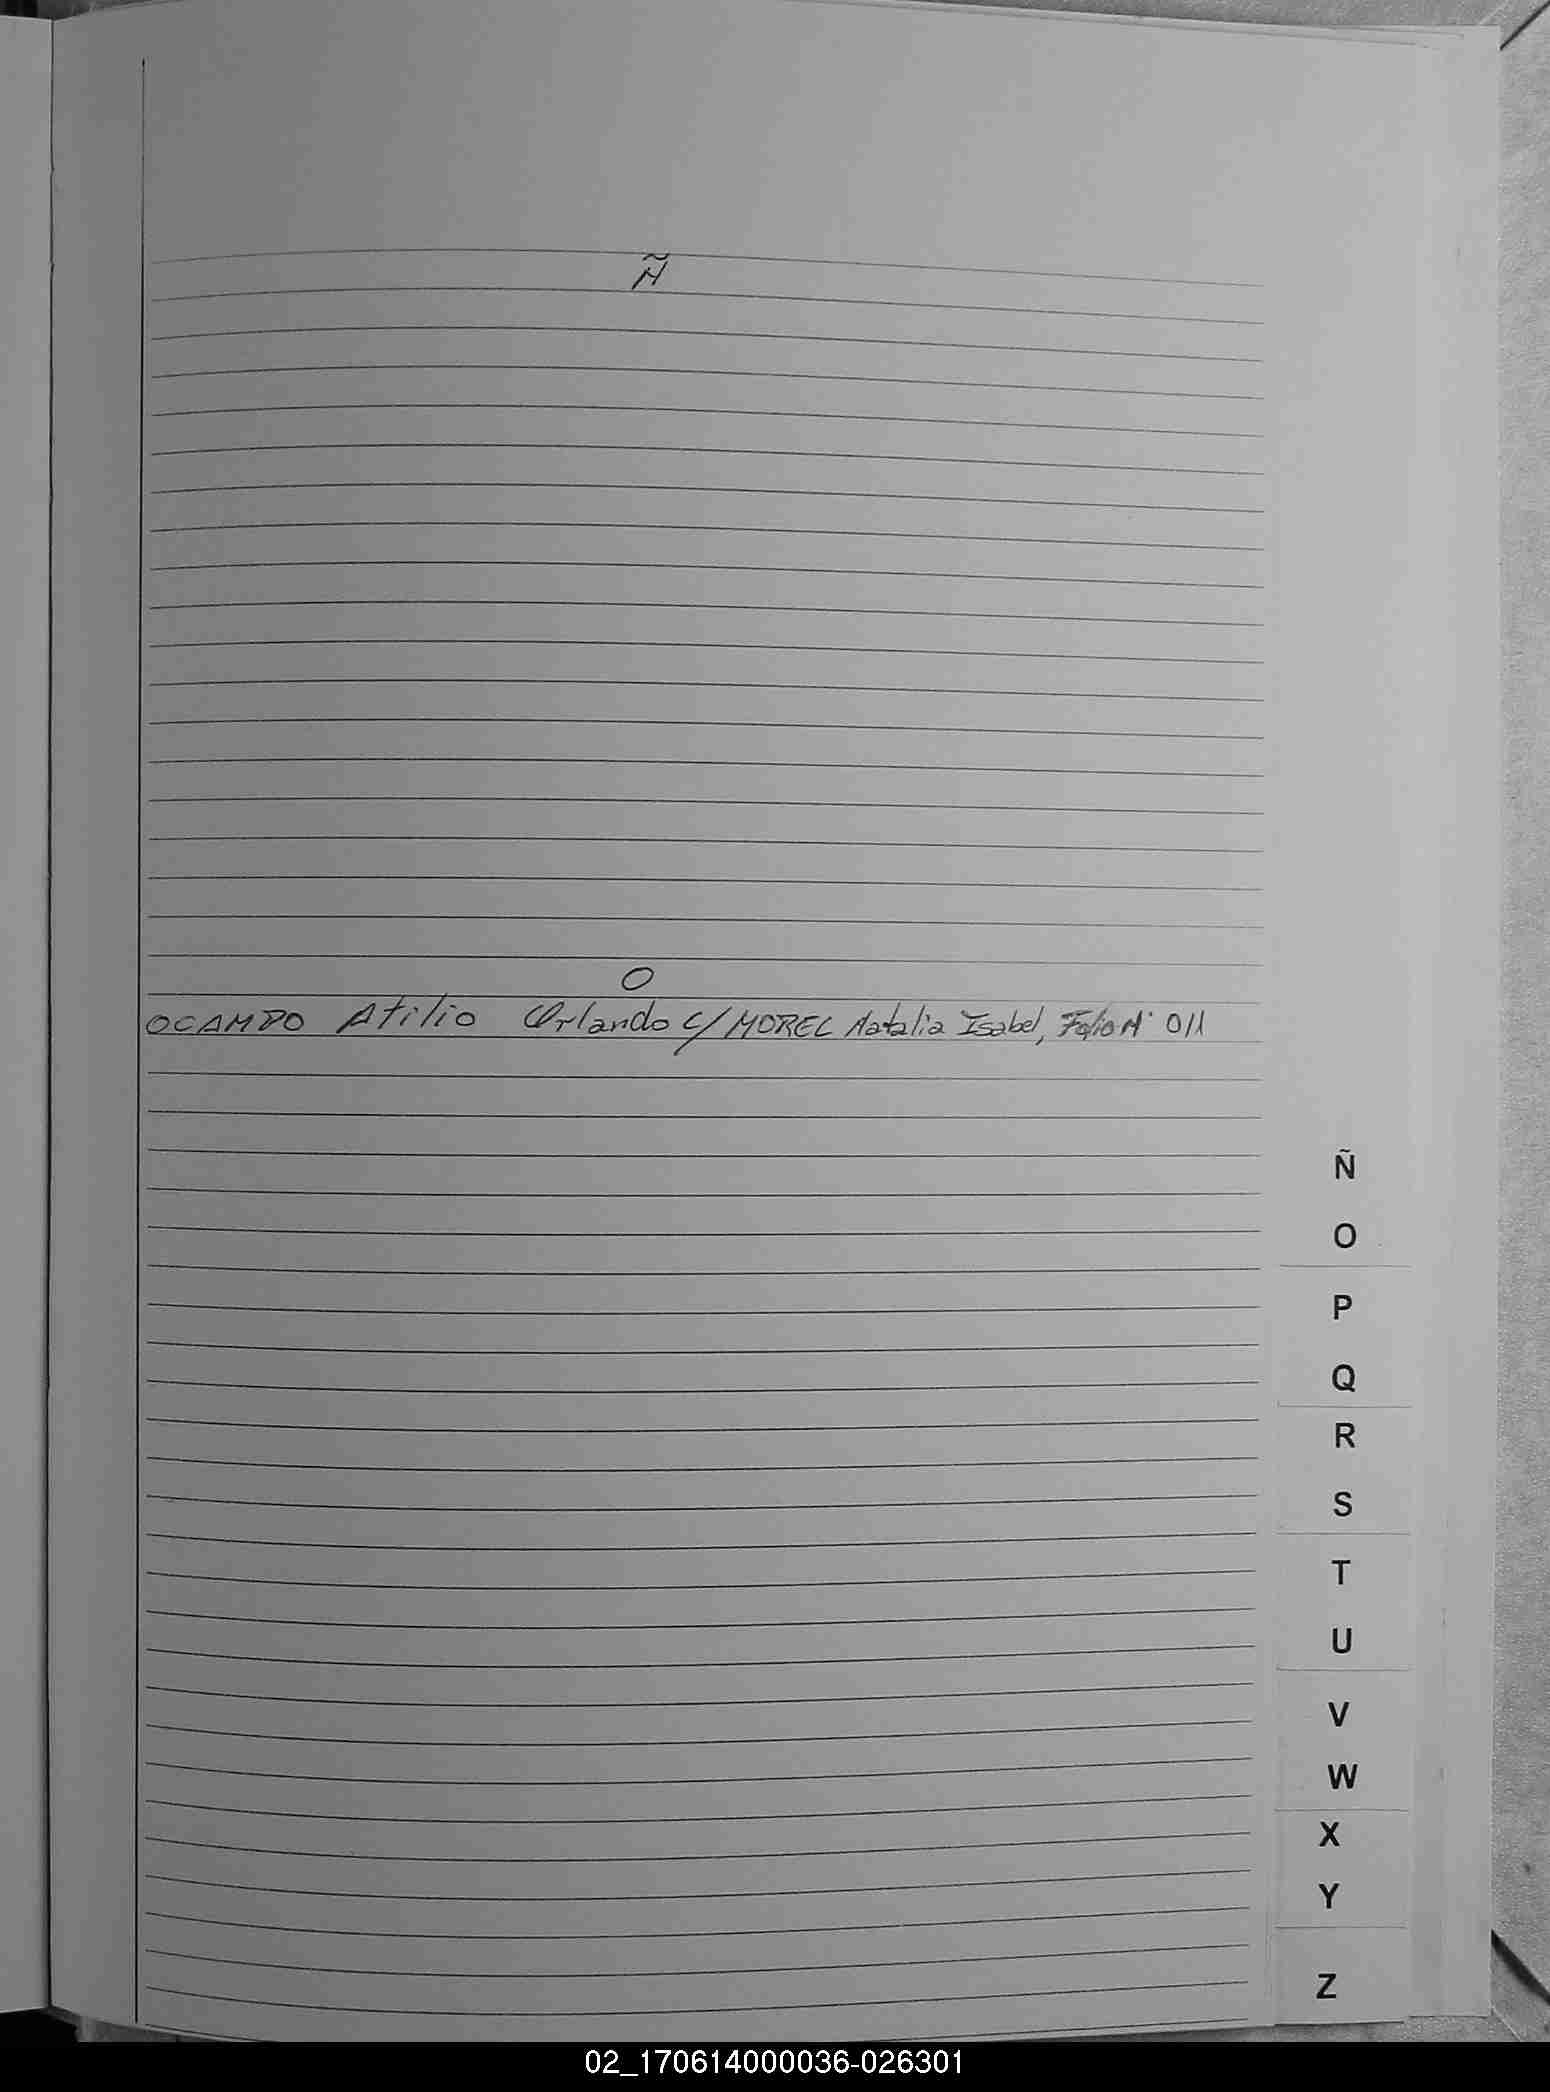 Ñ
O
OCAMPO Atilio Orlando c/ MOREL Natalia Isabel, Folio N° 011
Ñ
O
P
Q
R
S
T
U
V
W
X
Y
Z
02_170614000036-026301